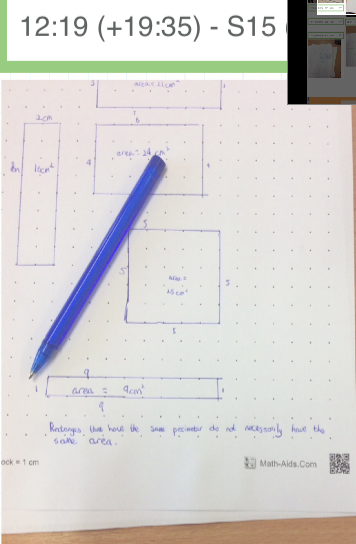 12:19 (+19:35) - S15 (
2
area = 21 cm²
2cm
6
4
area = 24 cm²
4
8m
16cm²
5
5
area =
25 cm²
5
5
9
1
area = 9cm²
1
9
Rectangles that have the same perimeter do not necessarily have the
same area.
ock = 1 cm
Math-Aids.Com